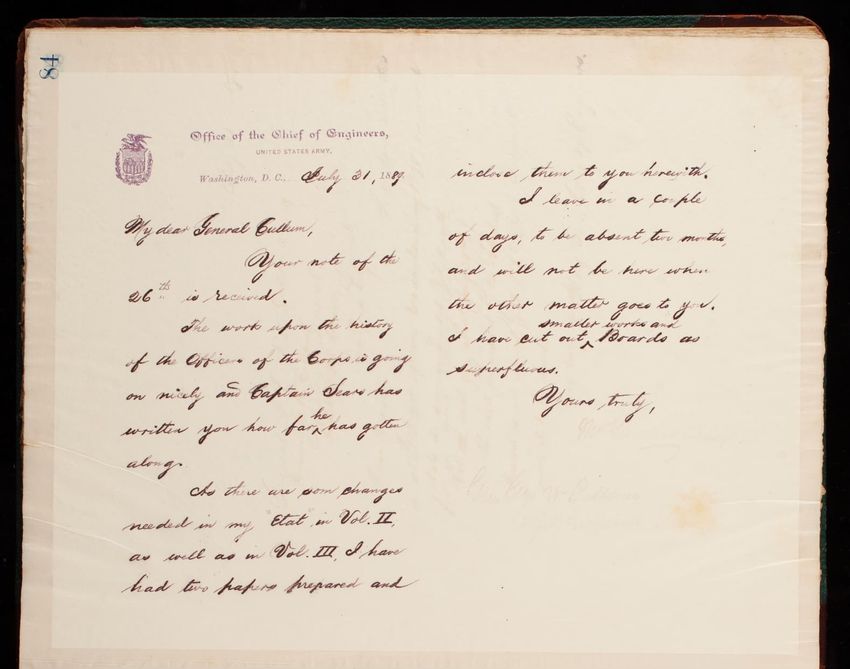 84
Office of the Chief of Engineers,
UNITED STATES ARMY.
Washington, D. C., July 31, 1889
My dear General Cullum,
Your note of the
26th is received.
The work upon the history
of the Officers of the Corps is going
on nicely and Captain Sears has
written you how far he has gotten
along.
As there are som changes
needed in my Etat in Vol. II,
as well as in Vol. III, I have
had two papers prepared and
inclose them to you herewith.
I leave in a couple
of days, to be absent two months,
and will not be here when
the other matter goes to you.
I have cut out smaller works and Boards as
superfluous.
Yours truly,